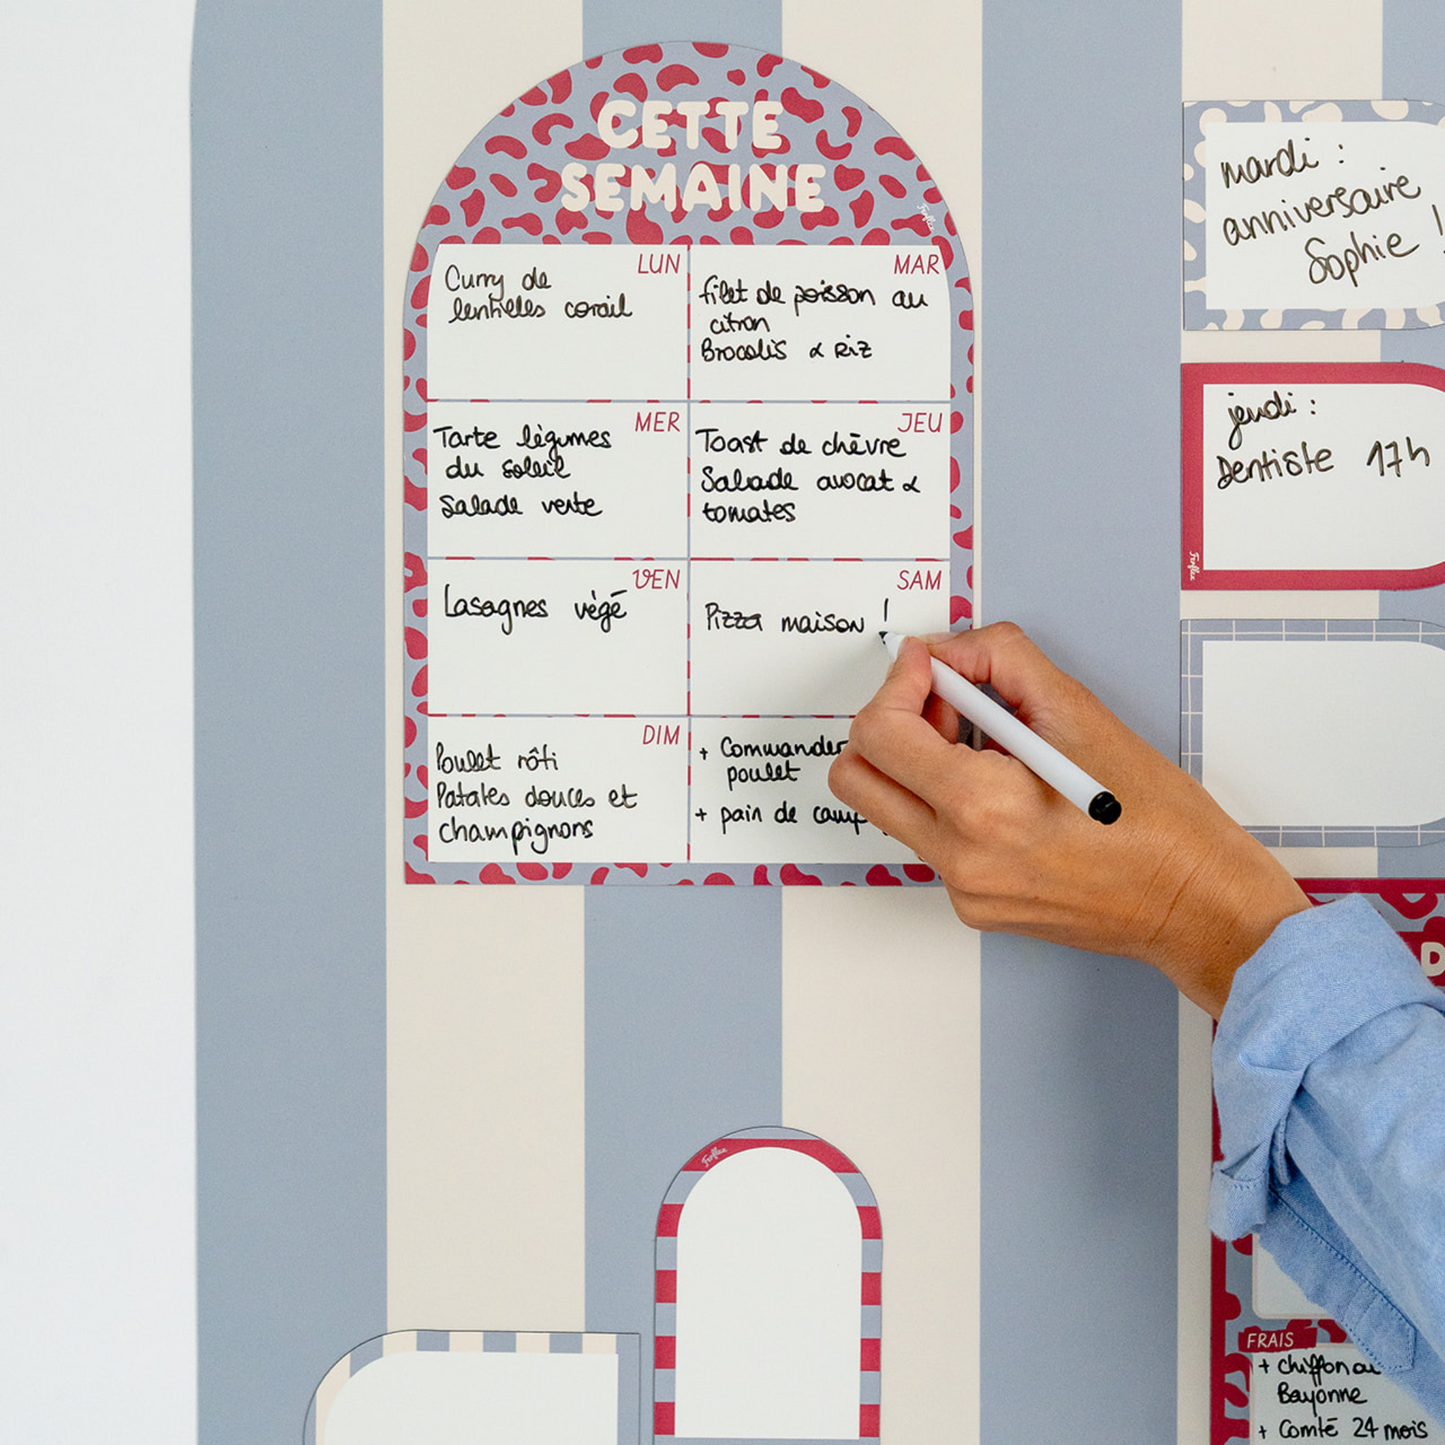 CETTE
SEMAINE
Ferflex
LUN
Curry de
lentilles corail
MAR
filet de poisson au
citron
Brocolis & Riz
MER
Tarte légumes
du soleil
Salade verte
JEU
Toast de chèvre
Salade avocat &
tomates
VEN
Lasagnes végé
SAM
Pizza maison !
DIM
Poulet rôti
Patates douces et
champignons
+ Commander
poulet
+ pain de camp
mardi :
anniversaire
Sophie !
jeudi :
Dentiste 17h
Ferflex
D
Ferflex
FRAIS
+ chiffon
Bayonne
+ Comté 24 mois